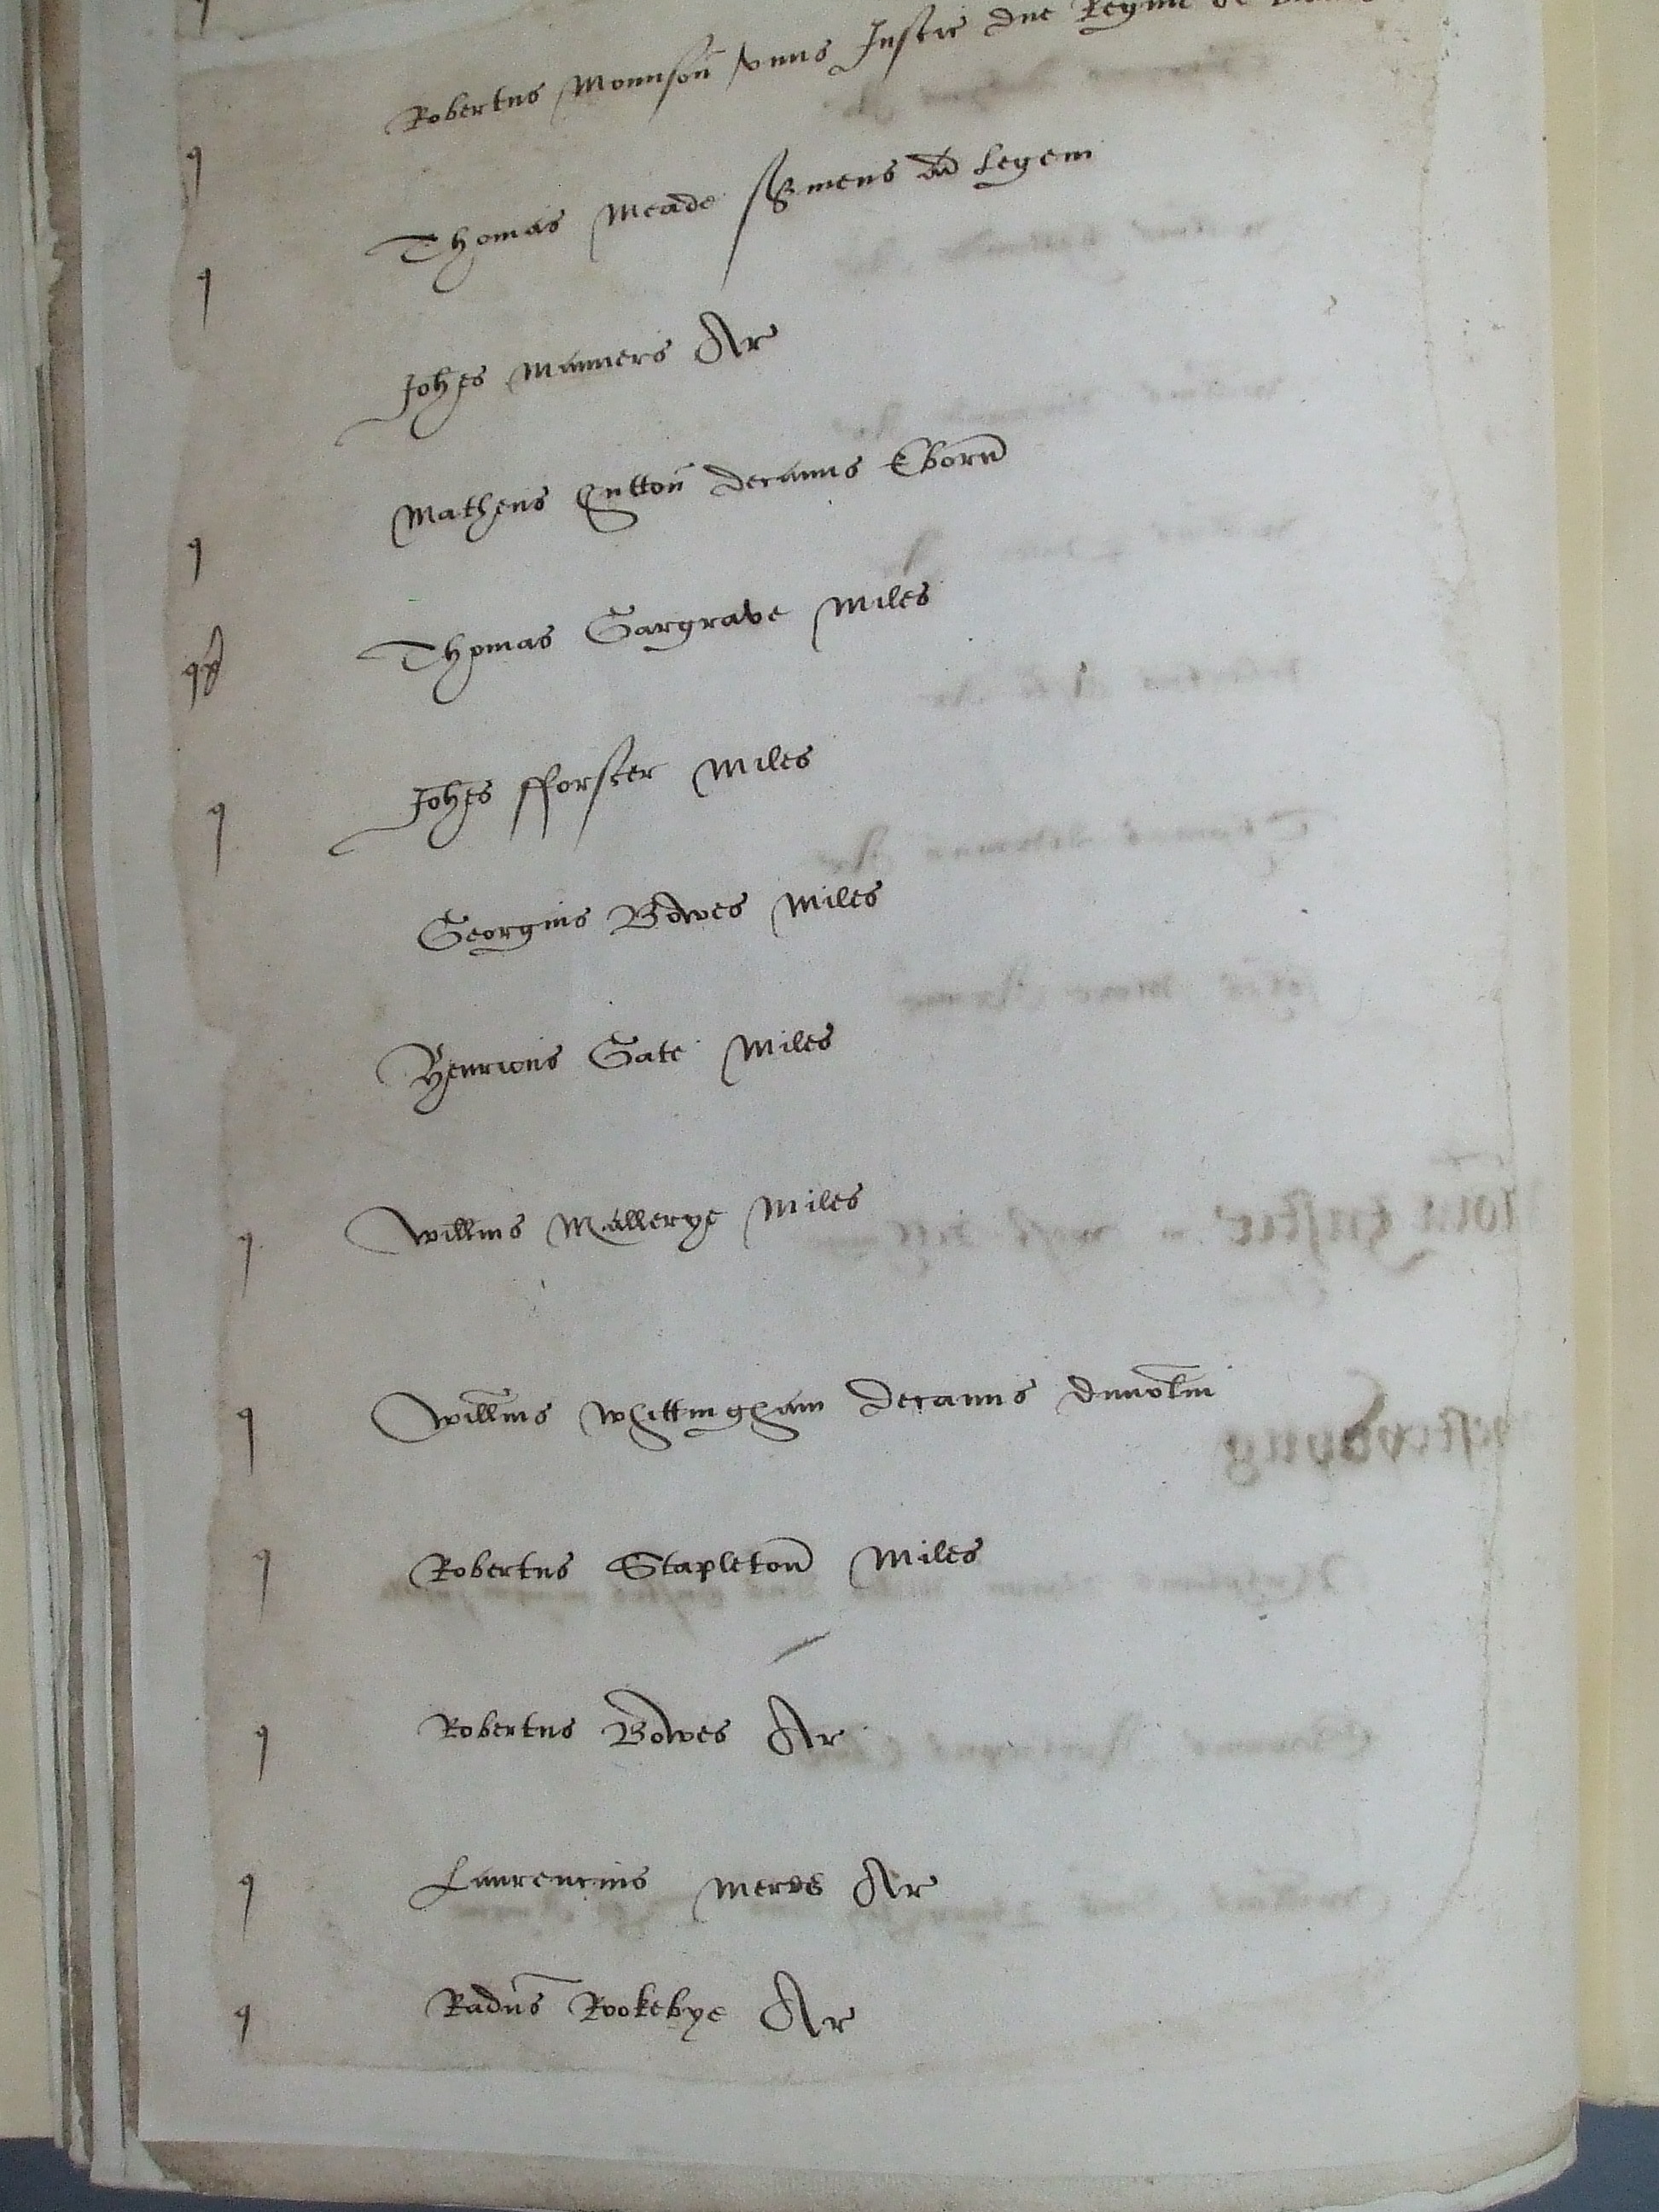 Robertus Mounson unus Justic dne Regine de
q Thomas Meade s'viens ad Legem
q Johes Manners Ar
Matheus Hutton decanus Eborn
q Thomas Gargrave Miles
Johes fforster Miles
q Georgius Bowes Miles
Henricus Gate Miles
q Willms Mallerye Miles
q Willms Whittingham decanus dunolm
q Robertus Stapleton Miles
q Robertus Bowes Ar
q Laurencius Meres Ar
q Radus Rookebye Ar